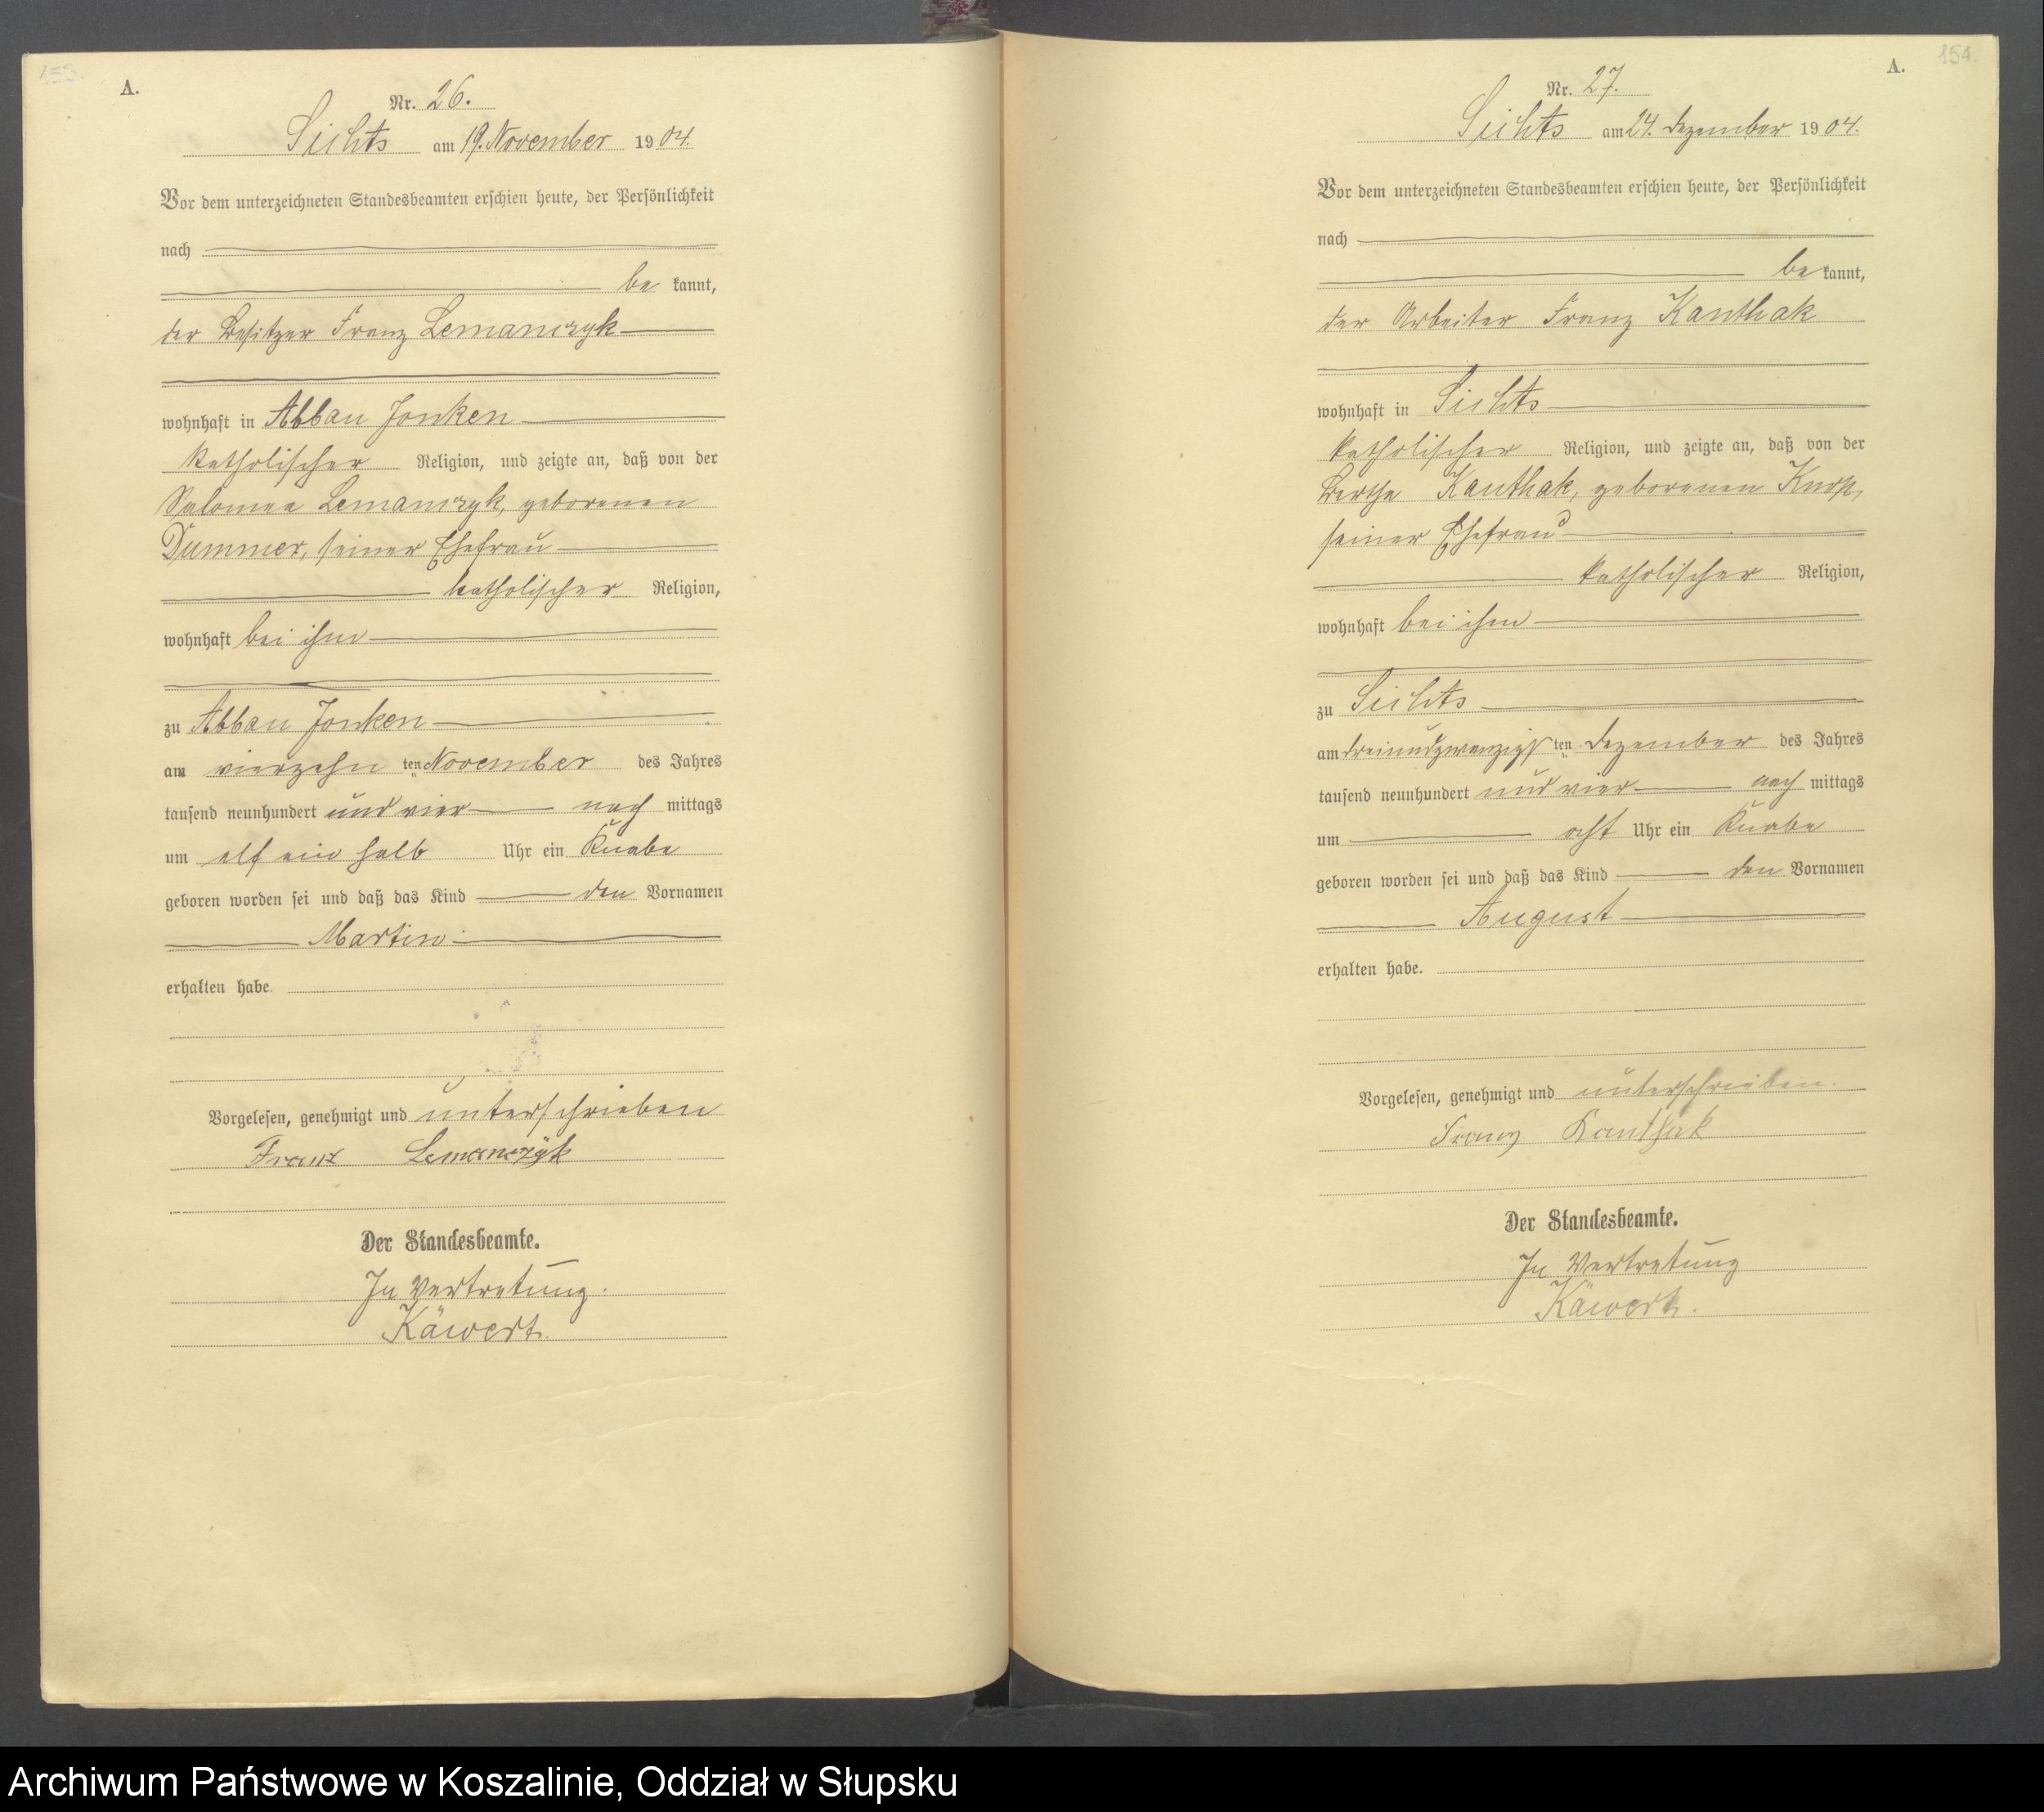 153.
A.
Nr. 26.
Sichts am 19. November 1904.
Vor dem unterzeichneten Standesbeamten erschien heute, der Persönlichkeit
nach
be kannt,
der Besitzer Franz Lemanczyk
wohnhaft in Abbau Jonken
katholischer Religion, und zeigte an, daß von der
Salomea Lemanczyk, geborenen
Dummer, seiner Ehefrau
katholischer Religion,
wohnhaft bei ihm
zu Abbau Jonken
am vierzehn ten November des Jahres
tausend neunhundert und vier nach mittags
um elf ein halb Uhr ein Knabe
geboren worden sei und daß das Kind den Vornamen
Martin
erhalten habe.
Vorgelesen, genehmigt und unterschrieben
Franz Lemanczyk
Der Standesbeamte.
In Vertretung.
Käwert.
154.
A.
Nr. 27.
Sichts am 24. Dezember 1904.
Vor dem unterzeichneten Standesbeamten erschien heute, der Persönlichkeit
nach
be kannt,
der Arbeiter Franz Kanthak
wohnhaft in Sichts
katholischer Religion, und zeigte an, daß von der
Bertha Kanthak, geborenen
seiner Ehefrau
katholischer Religion,
wohnhaft bei ihm
zu Sichts
am dreiundzwanzigs ten Dezember des Jahres
tausend neunhundert und vier nach mittags
um acht Uhr ein Knabe
geboren worden sei und daß das Kind den Vornamen
August
erhalten habe.
Vorgelesen, genehmigt und unterschrieben.
Franz Kanthak
Der Standesbeamte.
In Vertretung
Käwert.
Archiwum Państwowe w Koszalinie, Oddział w Słupsku